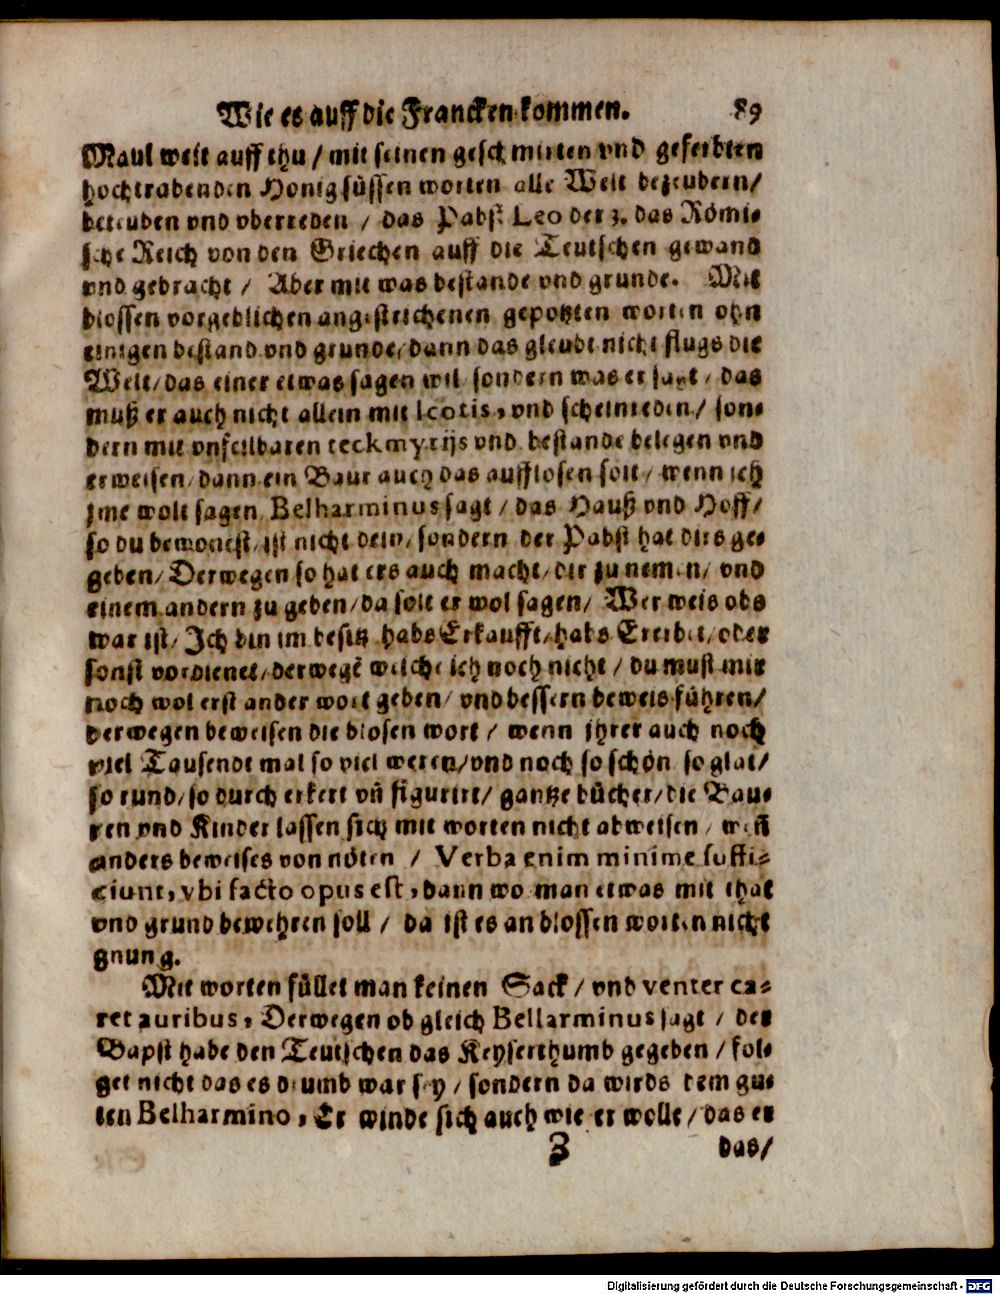 Wie es auff die Francken kommen. 89
Maul weit auff thu / mit seinen geschmirten vnd geferbten
hochtrabenden Honigsüssen worten alle Welt bezeubern/
beteuben vnd vberreden / das Pabst Leo der 3. das Römi⸗
sche Reich von den Griechen auff die Teutschen gewand
vnd gebracht / Aber mit was bestande vnd grunde. Mit
blossen vorgeblichen angestrichenen gepotzten worten ohn
einigen bestand vnd grunde/ dann das gleubt nicht flugs die
Welt/ das einer etwas sagen wil/ sondern was er sagt / das
muß er auch nicht allein mit Icotis, vnd scheinreden/ son⸗
dern mit vnfeilbaren teckmyrijs vnd bestande belegen vnd
erweisen/ dann ein Baur auch das aufflosen solt/ wenn ich
jme wolt sagen Belharminus sagt / das Hauß vnd Hoff/
so du bewonest/ ist nicht dein/ sondern der Pabst hat dirs ge⸗
geben/ Derwegen so hat ers auch macht/ dir zu nemen/ vnd
einem andern zu geben/ da solt er wol sagen/ Wer weis obs
war ist/ Ich bin im besitz habs Erkaufft/ habs Ererbet/ oder
sonst vordienet/ derwegē welche ich noch nicht / du must mir
noch wol erst ander wort geben/ vnd bessern beweis führen/
derwegen beweisen die blosen wort / wenn jhrer auch noch
viel Tausendt mal so viel weren/ vnd noch so schön so glat/
so rund/ so durch erkert vn̄ figurirt/ gantze bücher/ die Bau⸗
ren vnd Kinder lassen sich mit worten nicht abweisen / wen̄
anders beweises von nöten / Verba enim minime suffi⸗
ciunt, vbi facto opus est, dann wo man etwas mit that
vnd grund bewehren soll / da ist es an blossen worten nicht
gnung.
Mit worten füllet man keinen Sack / vnd venter ca⸗
ret auribus, Derwegen ob gleich Bellarminus sagt / der
Bapst habe den Teutschen das Keyserthumb gegeben / fol⸗
get nicht das es drumb war sey / sondern da wirds dem gu⸗
ten Belharmino, Er winde sich auch wie er wolle / das er
Z das/
Digitalisierung gefördert durch die Deutsche Forschungsgemeinschaft - DFG